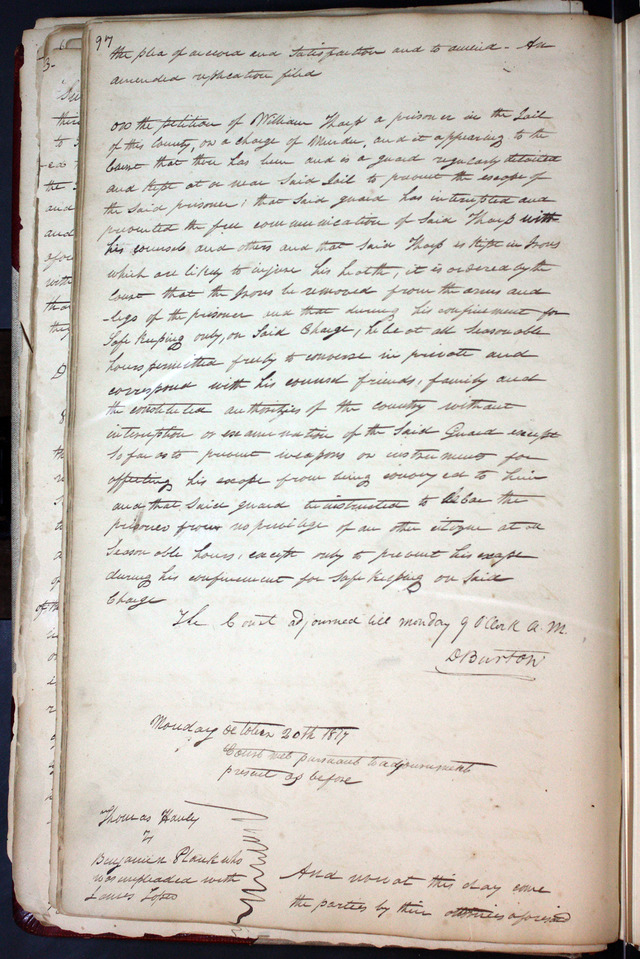 97
the plea of accord and Satisfaction and to amend - An
amended replication filed
On the petition of William Tharp a prisoner in the Jail
of this County, on a charge of Murder, and it appearing to the
Court that there has been and is a guard regularly detailed
and kept at or near Said Jail to prevent the escape of
the Said prisoner; that Said guard has interupted and
prevented the free communication of Said Tharp with
his counsels and others and that Said Tharp is kept in Irons
which are likely to injure his health, it is ordered by the
Court that the Irons be removed from the arms and
-legs of the prisoner and that during his confinement for
Safe keeping only, on Said Charge, he be at all Seasonable
hours permitted freely to converse in private and
correspond with his counsel friends, family and
the constituted authorities of the country without
interuption or examination of the Said Guard except
So far as to prevent weapons or instruments for
effecting his escape from being conveyed to him
and that Said guard be instructed to debar the
prisoner from no privilege of an other at
Seasonable hours, except only to prevent his escape
during his confinement for Safe keeping on Said
Charge
The Court adjourned till monday 9 OClock A. M.
D Burton
Monday October 20th 1817
Court met pursuant to adjournment
present as before
Thomas Hanly
Benjamin who
was impleaded with
And now at this day come
the parties by their attornies aforesaid